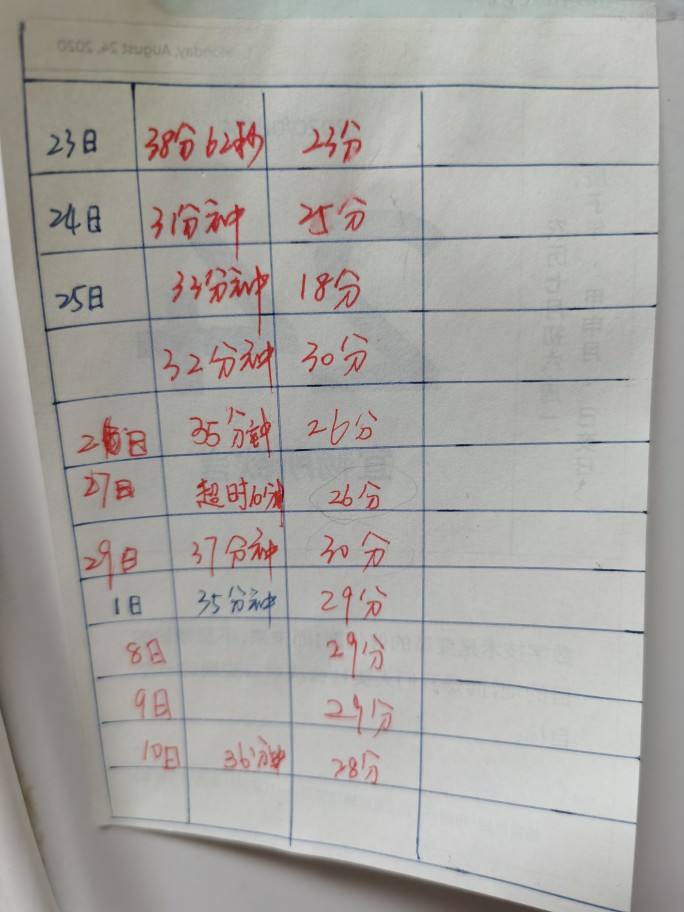 23日 38分62秒 23分
24日 31分钟 25分
25日 33分钟 18分
32分钟 30分
26日 35分钟 26分
27日 超时6分钟 26分
29日 37分钟 30分
1日 35分钟 29分
8日 29分
9日 29分
10日 36分钟 28分